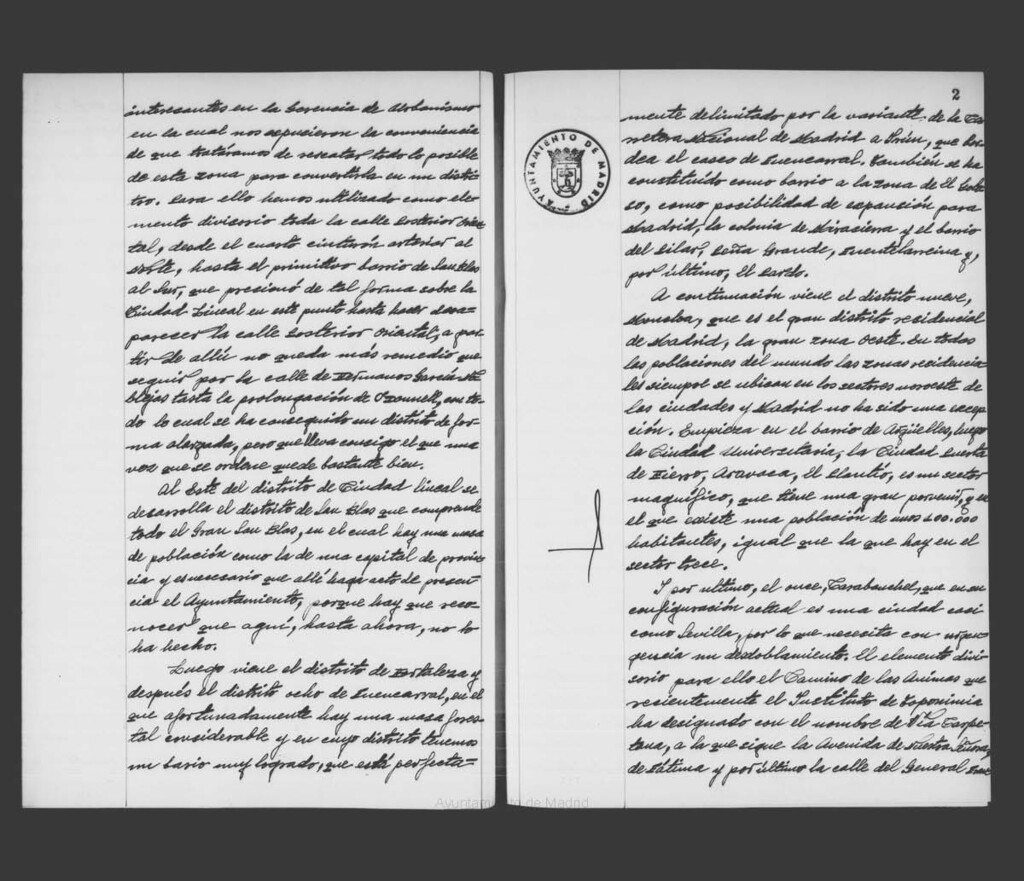 interesantes en la Gerencia de Urbanismo
en la cual nos expusieron la conveniencia
de que tratáramos de rescatar todo lo posible
de esta zona para convertirla en un distri-
tro. Para ello hemos utilizado como ele-
mento divisorio toda la calle Posterior Orien
tal, desde el cuarto cinturón arterial al
Norte, hasta el primitivo barrio de San Blas
al Sur, que presionó de tal forma sobre la
Ciudad Lineal en este punto hasta hacer desa-
parecer la calle Posterior Oriental, a par-
tir de allí no queda más remedio que
seguir por la calle de Hermanos García No
blejas tasta la prolongación de O'Donnell, con to-
do lo cual se ha conseguido un distrito de for-
ma alargada, pero que lleva consigo el que una
vez que se ordene quede bastante bien.
Al Este del distrito de Ciudad lineal se
desarrolla el distrito de San Blas que comprende
todo el Gran San Blas, en el cual hay una masa
de población como la de una capital de provin
cia y es necesario que allí haga acto de presen-
cia el Ayuntamiento, porque hay que reco-
nocer que aquí, hasta ahora, no lo
ha hecho.
Luego viene el distrito de Hortaleza y
después el distrito ocho de Fuencarral, en el
que afortunadamente hay una masa fores-
tal considerable y en cuyo distrito tenemos
un bario muy logrado, que está perfecta-
2
AYUNTAMIENTO DE MADRID
mente delimitado por la variante de la Ca
rretera Nacional de Madrid a Irún, que bor
dea el casco de Fuencarral. También se ha
constituído como barrio a la zona de El Golo
so, como posibilidad de expansión para
Madrid, la colonia de Mirasierra y el barrio
del Pilar, Peña Grande, Fuentelarreina y,
por último, El Pardo.
A continuación viene el distrito nueve,
Moncloa, que es el gran distrito residencial
de Madrid, la gran zona Oeste. En todas
las poblaciones del mundo las zonas residencia-
les siempre se ubican en los sectores noroeste de
las ciudades y Madrid no ha sido una excep
ción. Empieza en el barrio de Argüelles, luego
la Ciudad Universitaria, la Ciudad Puerta
de Hierro, Aravaca, El Plantío, es un sector
magnífico, que tiene una gran porvenir, y en
el que existe una población de unos 100.000
habitantes, igual que la que hay en el
sector trece.
Y por ultimo, el once, Carabanchel, que en su
configuración actual es una ciudad casi
como Sevilla, por lo que necesita con urgen-
gencia un desdoblamiento. El elemento divi-
sorio para ello el Camino de las Animas que
recientemente el Instituto de Toponimia
ha designado con el nombre de Vía Carpe-
tana, a la que sigue la Avenida de Nuestra Señora
de Fátima y por último la calle del General
Ayuntamiento de Madrid